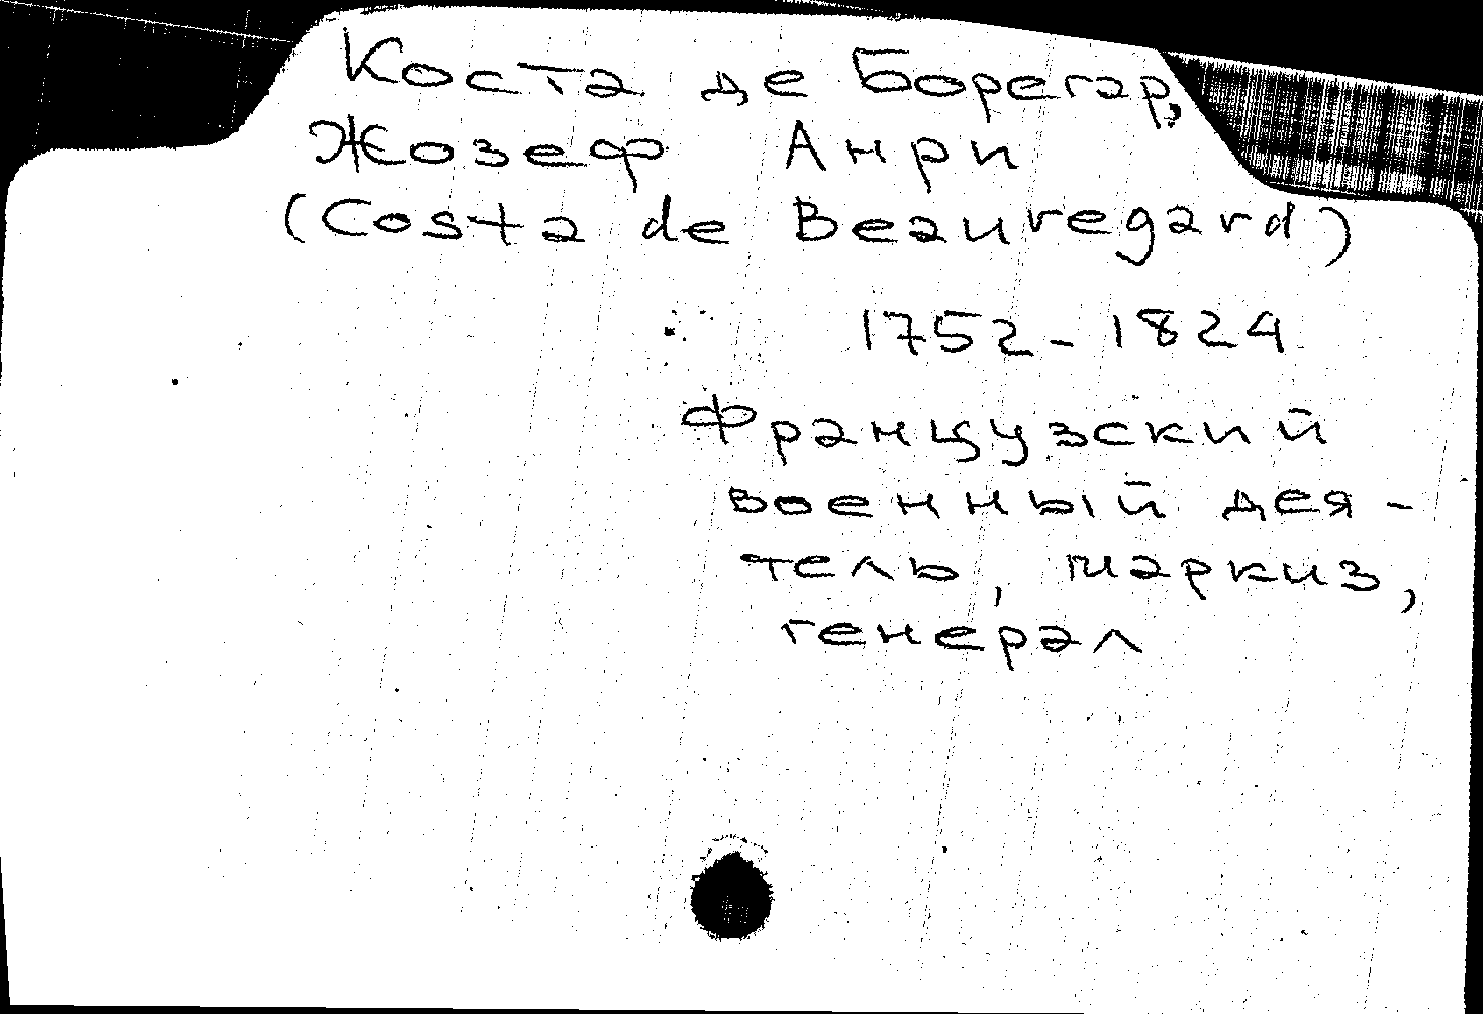 Коста де Борегар,
Жозеф Анри
(Costa de Beauregard)
1752-1824
Французский
военный дея-
тель, маркиз,
генерал